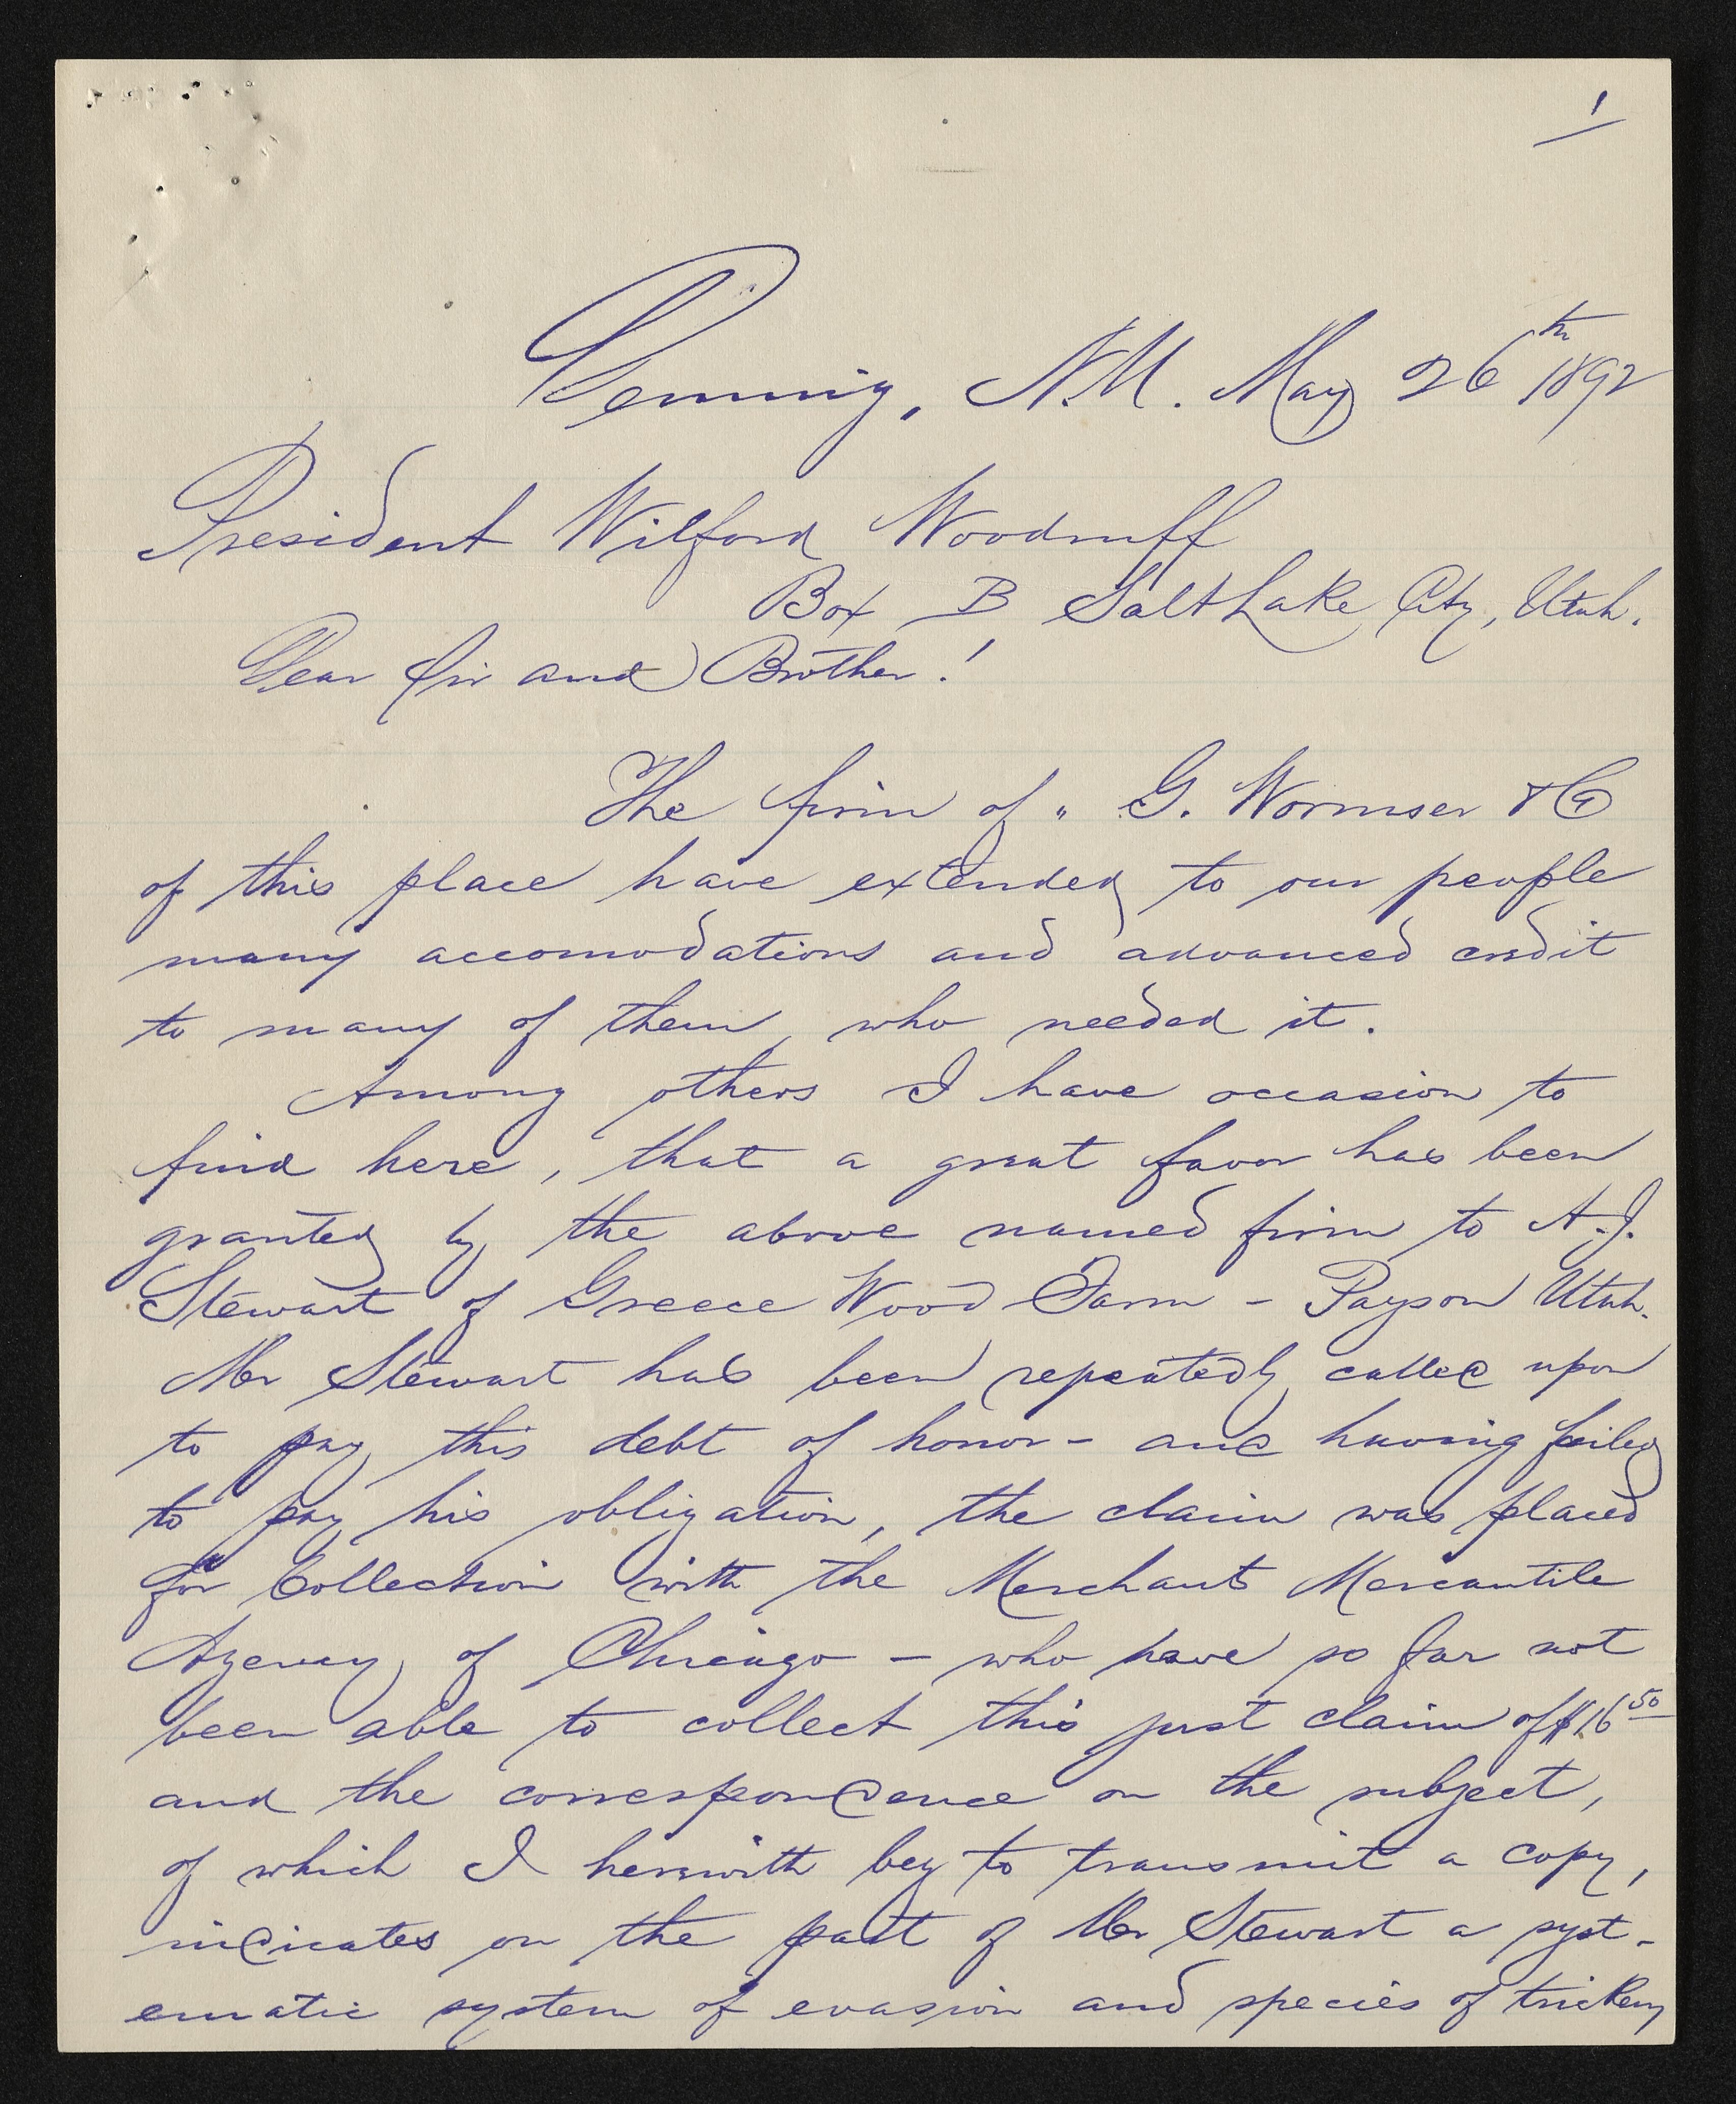 1
Deming, N.M. May 26th 1892
President Wilford Woodruff
Box B Salt Lake City, Utah.
Dear Sir and Brother!
The firm of „ G. Wormser & Co
of this place have extended to our people
many accomodations and advanced credit
to many of them who needed it.
Among others I have occasion to
find here, that a great favor has been
granted by the above named firm to A.J.
Stewart of Greece Wood Farm - Payson Utah.
Mr Stewart has been repeatedly called upon
to pay this debt of honor - and having failed
to pay his obligation, the claim was placed
for Collection with the Merchants Mercantile
Agency of Chicago - who have so far not
been able to collect this just claim of $16 50
and the correspondence on the subject,
of which I herewith beg to transmit a copy,
indicates on the part of Mr Stewart a syst-
ematic system of evasion and species of trickery